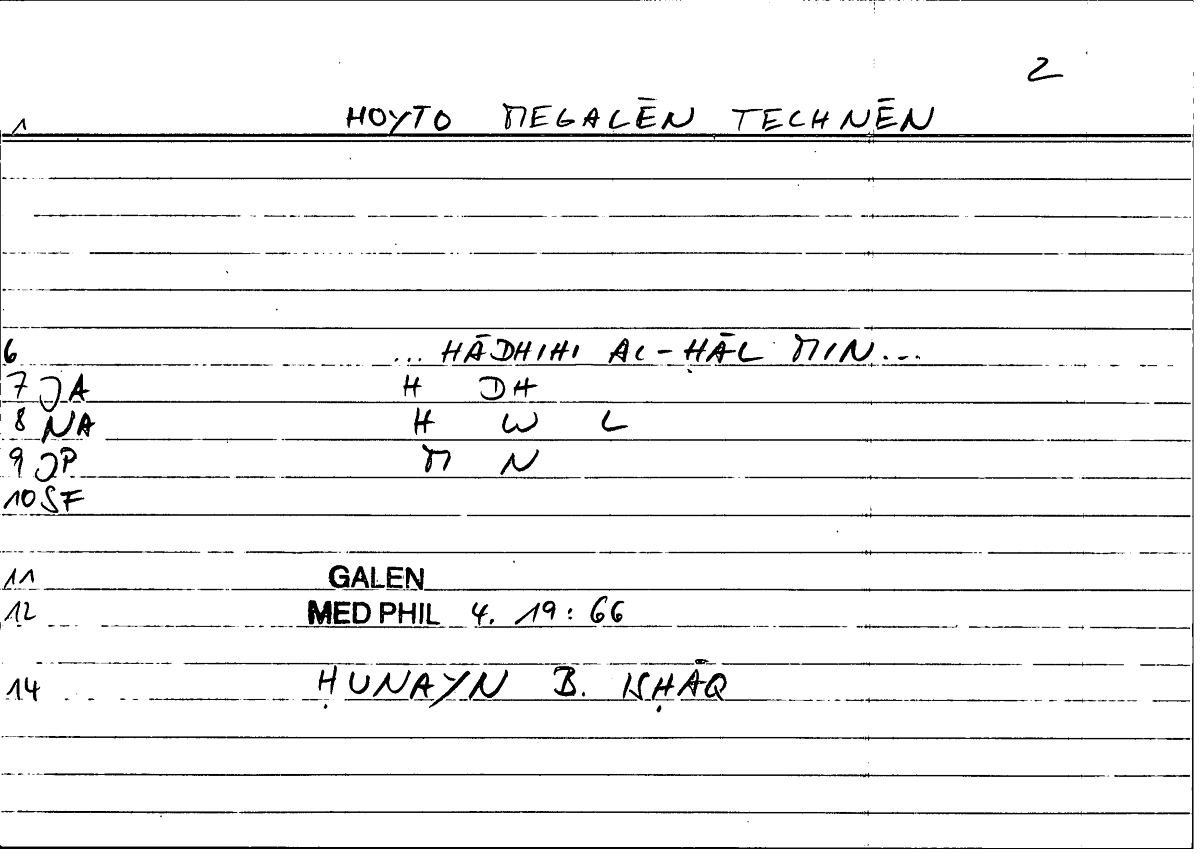 2
1 HOYTO MEGALĒN TECHNĒN
6 ... HĀDHIHI AL-ḤĀL MIN...
7 JA H DH
8 NA H W L
9 JP M N
10 SF
11 GALEN
12 MED PHIL 4. 19: 66
14 ḤUNAYN B. ISḤĀQ